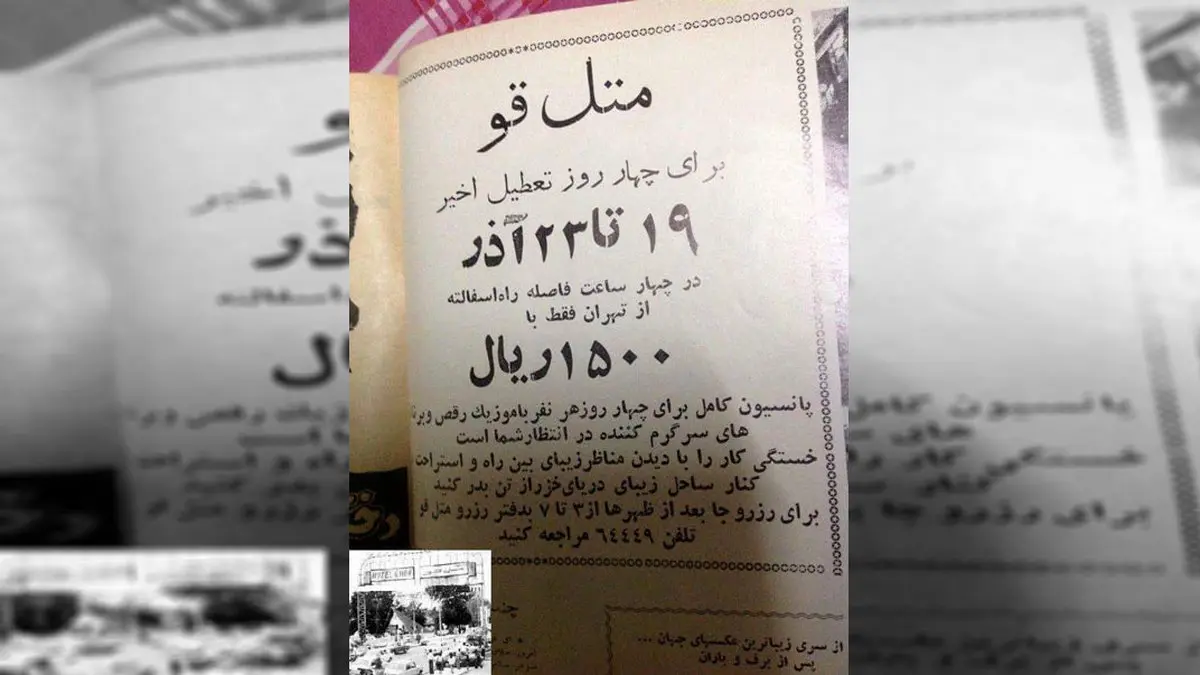 متل قو
برای چهار روز تعطیل اخیر
۱۹ تا ۲۳ آذر
در چهار ساعت فاصله راه‌اسفالته
از تهران فقط با
۱۵۰۰ ریال
پانسیون کامل برای چهار روزهر نفر باموزیك رقص وبرنا
های سرگرم کننده در انتظارشما است
خستگی کار را با دیدن مناظرزیبای بین راه و استراحت
کنار ساحل زیبای دریای‌خزراز تن بدر کنید
برای رزرو جا بعد از ظهرها از۳ تا ۷ بدفتر رزرو متل قو
تلفن ۶۴۴۴۹ مراجعه کنید
MOTEL GHOO
از سری زیباترین عکسهای جهان ...
پس از برف و باران